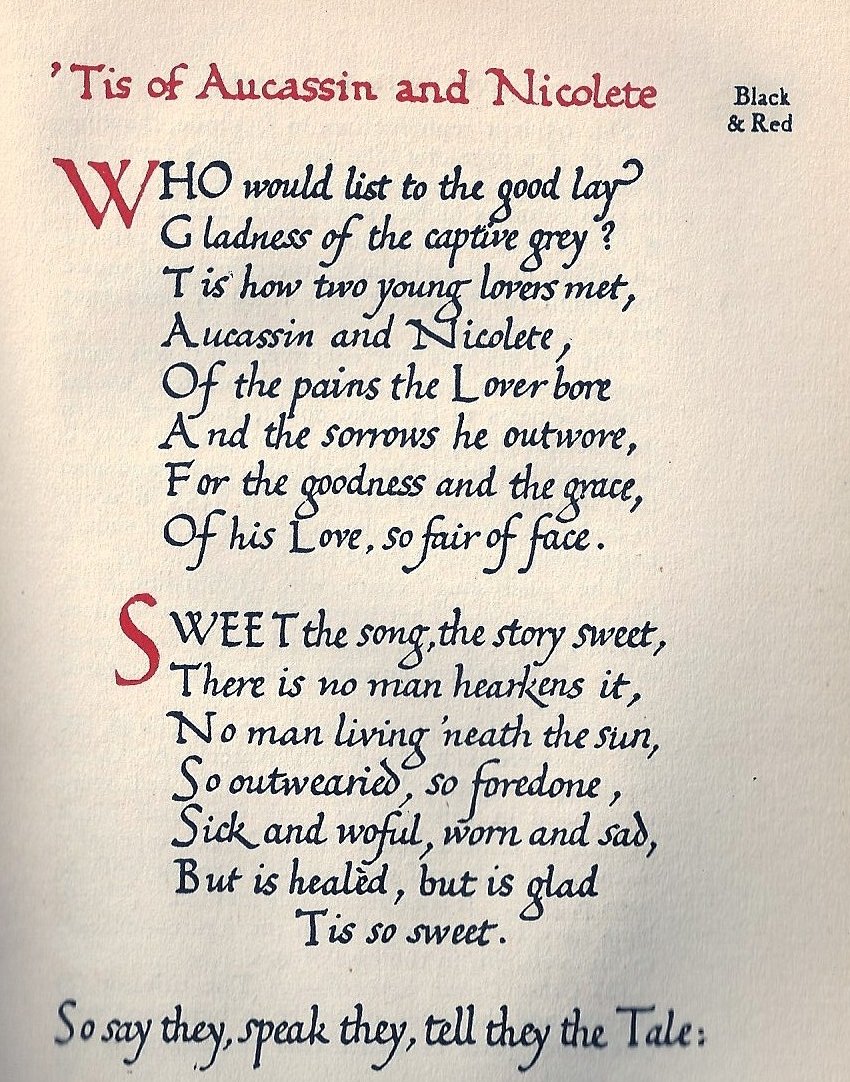 ’Tis of Aucassin and Nicolete
Black
& Red
WHO would list to the good lay
Gladness of the captive grey ?
Tis how two young lovers met,
Aucassin and Nicolete,
Of the pains the Lover bore
And the sorrows he outwore,
For the goodness and the grace,
Of his Love, so fair of face.
SWEET the song, the story sweet,
There is no man hearkens it,
No man living ’neath the sun,
So outwearied, so foredone,
Sick and woful, worn and sad,
But is healèd, but is glad
Tis so sweet.
So say they, speak they, tell they the Tale: